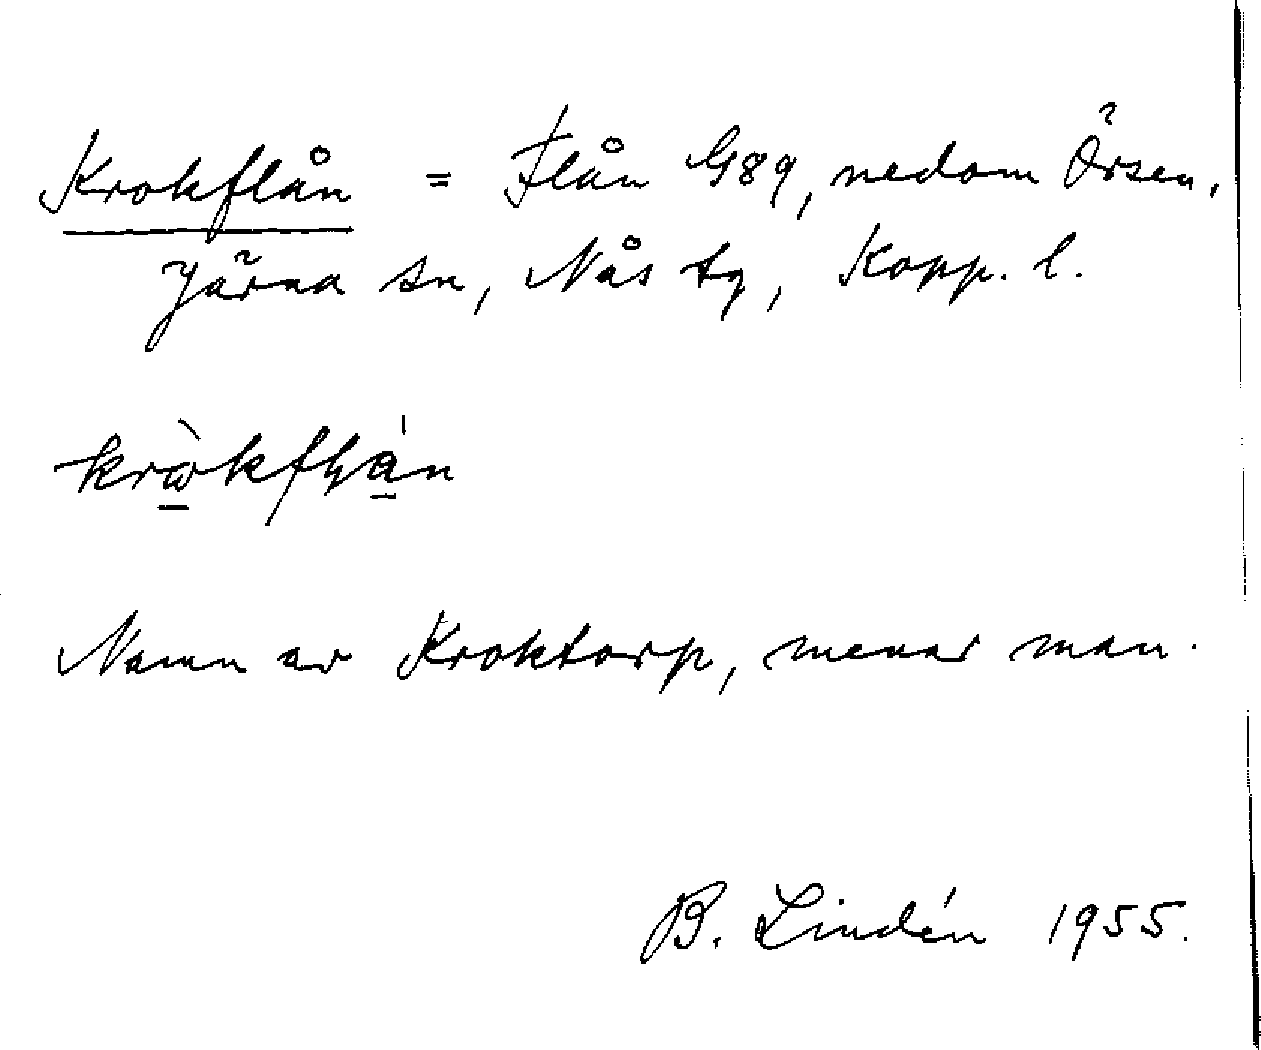 Krokflån = Flån G89, nedom Örsen,
Järna sn, Nås tg, Kopp. l.
Namn av Kroktorp, menar man.
B. Lindén 1955.